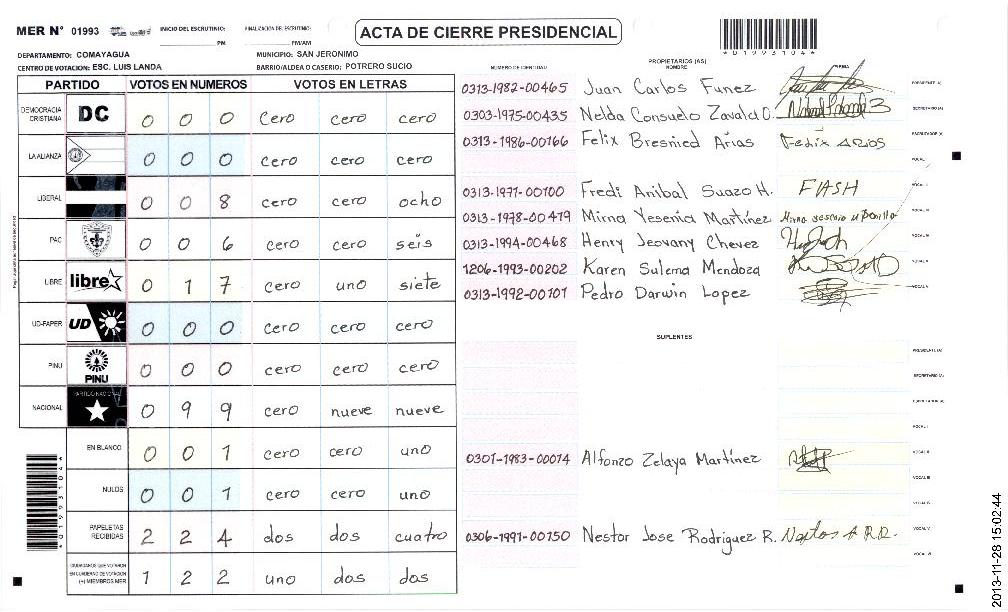 MER N° 01993
INICIO DEL ESCRUTINIO: PM
FINALIZACION DEL ESCRUTINIO: PM/AM
ACTA DE CIERRE PRESIDENCIAL
*01993104*
DEPARTAMENTO: COMAYAGUA
MUNICIPIO: SAN JERONIMO
CENTRO DE VOTACION: ESC. LUIS LANDA
BARRIO/ALDEA O CASERIO: POTRERO SUCIO
PARTIDO VOTOS EN NUMEROS VOTOS EN LETRAS
DEMOCRACIA CRISTIANA DC 0 0 0 cero cero cero
LA ALIANZA 0 0 0 cero cero cero
LIBERAL 0 0 8 cero cero ocho
PAC 0 0 6 cero cero seis
LIBRE libre 0 1 7 cero uno siete
UD-FAPER UD 0 0 0 cero cero cero
PINU PINU 0 0 0 cero cero cero
NACIONAL PARTIDO NACIONAL 0 9 9 cero nueve nueve
EN BLANCO 0 0 1 cero cero uno
NULOS 0 0 1 cero cero uno
PAPELETAS RECIBIDAS 2 2 4 dos dos cuatro
CIUDADANOS QUE VOTARON EN CUADERNO DE VOTACION (+) MIEMBROS MER 1 2 2 uno dos dos
*01993104*
NUMERO DE IDENTIDAD PROPIETARIOS (AS) NOMBRE FIRMA
0313-1982-00465 Juan Carlos Funez PRESIDENTE (A)
0303-1975-00435 Nelda Consuelo Zavala O. SECRETARIO (A)
0313-1986-00166 Felix Bresnied Arias Felix Arios ESCRUTADOR (A)
VOCAL I
0313-1971-00100 Fredi Anibal Suazo H. FIASH VOCAL II
0313-1978-00479 Mirna Yesenia Martínez VOCAL III
0313-1994-00468 Henry Jeovany Chevez VOCAL IV
1206-1993-00202 Karen Sulema Mendoza VOCAL V
0313-1992-00101 Pedro Darwin Lopez VOCAL VI
SUPLENTES
PRESIDENTE (A)
SECRETARIO (A)
ESCRUTADOR (A)
VOCAL I
0301-1983-00014 Alfonzo Zelaya Martínez VOCAL II
VOCAL III
VOCAL IV
0306-1991-00150 Nestor Jose Rodriguez R. VOCAL V
VOCAL VI
2013-11-28 15:02:44